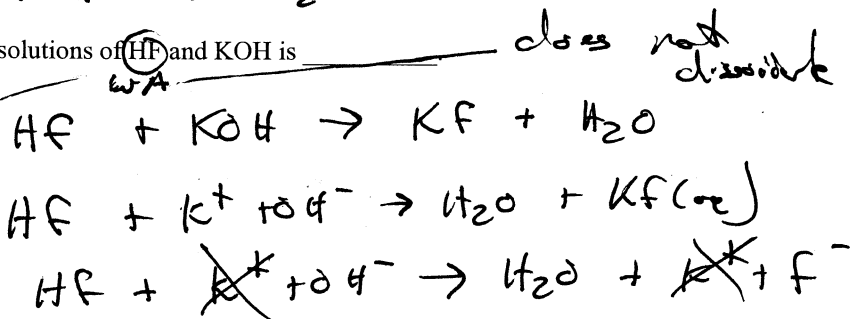 solutions of HF and KOH is ____________ does not
dissociate
HF + KOH → KF + H₂O
HF + K⁺ + OH⁻ → H₂O + KF(aq)
HF + K⁺ + OH⁻ → H₂O + K⁺ + F⁻